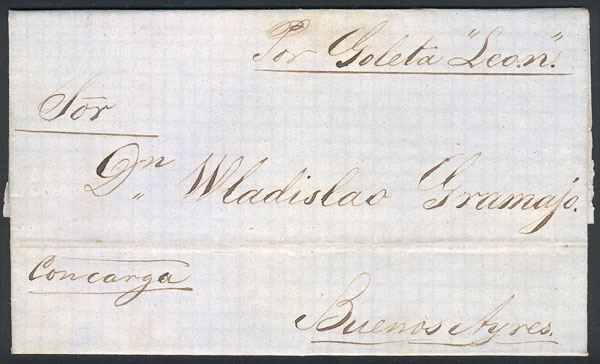 Por Goleta "Leon".
Sōr
Dn Wladislao Gramajo.
Concarga
Buenos Ayres.